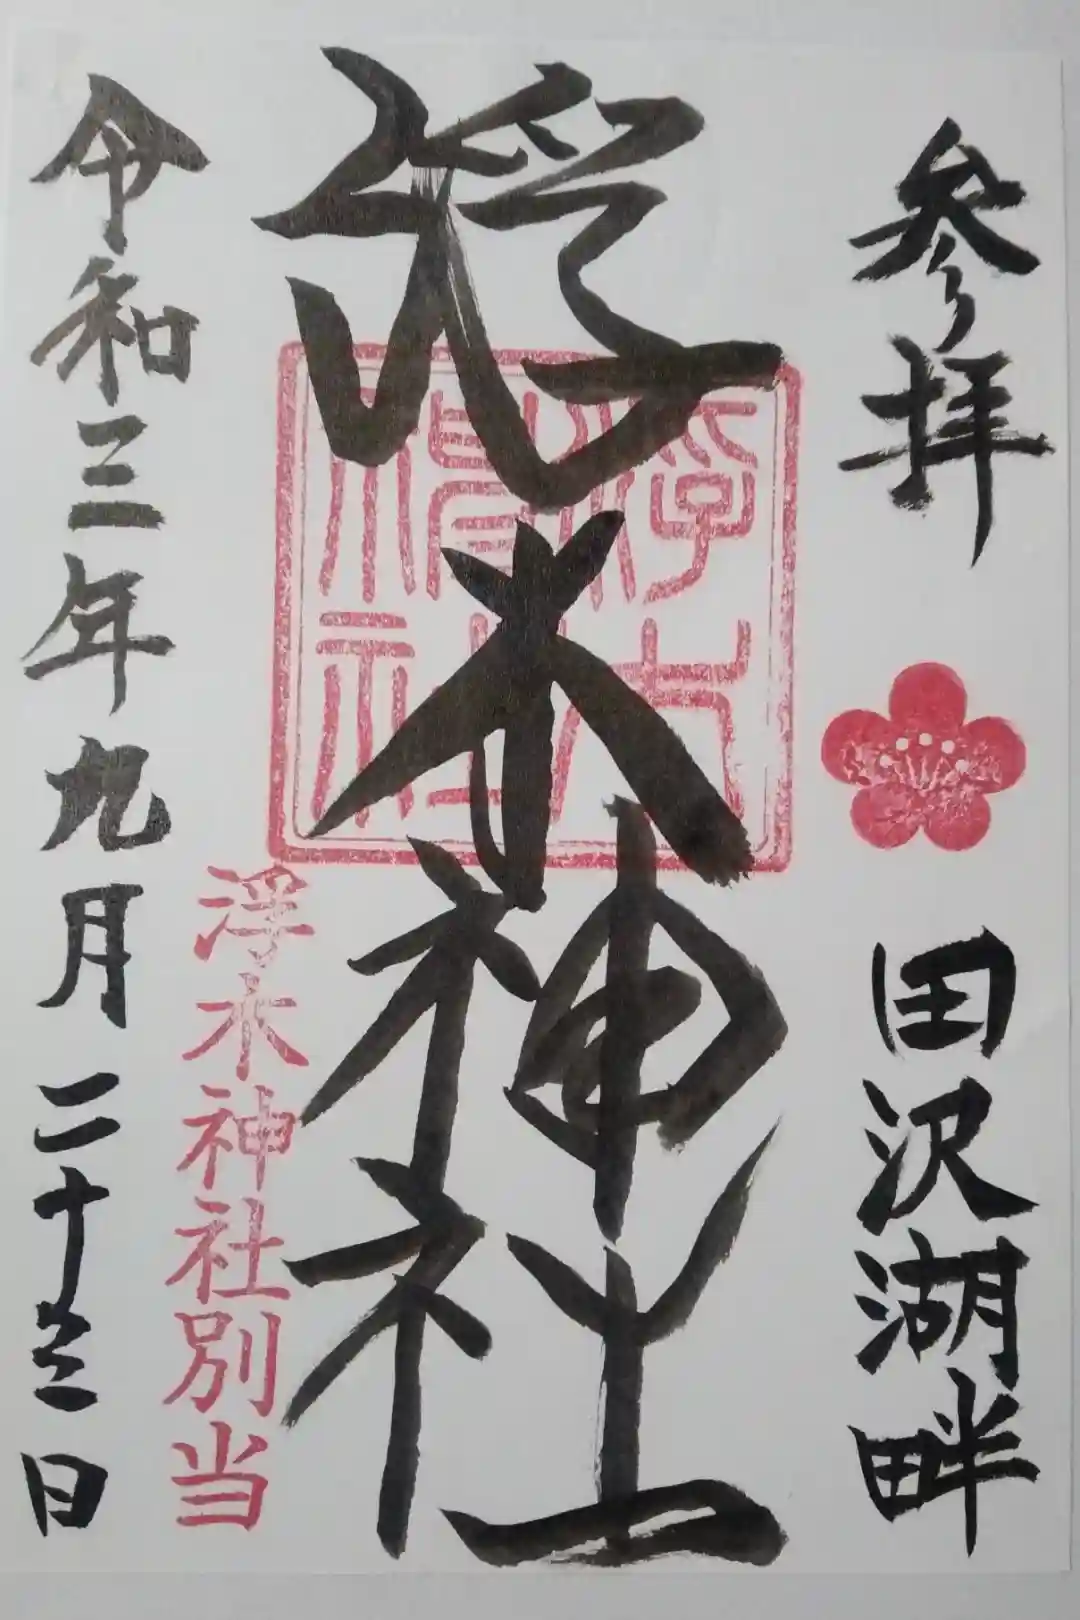 参拝
田沢湖畔
浮木神社
浮木神社別当
令和三年九月二十三日